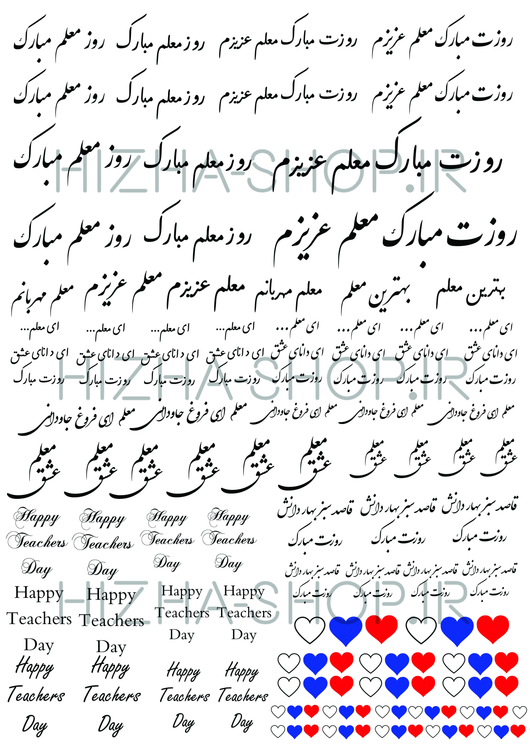 روزت مبارک معلم عزیزم روزت مبارک معلم عزیزم روز معلم مبارک روز معلم مبارک
روزت مبارک معلم عزیزم روزت مبارک معلم عزیزم روز معلم مبارک روز معلم مبارک
روزت مبارک معلم عزیزم روز معلم مبارک روز معلم مبارک
HIZHA-SHOP.IR
روزت مبارک معلم عزیزم روز معلم مبارک روز معلم مبارک
بهترین معلم بهترین معلم معلم مهربانم معلم عزیزم معلم عزیزم معلم مهربانم
ای معلم... ای معلم... ای معلم... ای معلم... ای معلم... ای معلم... ای معلم... ای معلم...
ای دانای عشق ای دانای عشق ای دانای عشق ای دانای عشق ای دانای عشق ای دانای عشق ای دانای عشق ای دانای عشق
روزت مبارک روزت مبارک روزت مبارک روزت مبارک روزت مبارک روزت مبارک روزت مبارک روزت مبارک
HIZHA-SHOP.IR
معلم ای فروغ جاودانی معلم ای فروغ جاودانی معلم ای فروغ جاودانی معلم ای فروغ جاودانی معلم ای فروغ جاودانی
معلم معلم معلم معلم معلم معلم معلم معلم معلم معلم
عشق عشق عشق عشق عشق عشق عشق عشق عشق عشق
قاصد سبز بهار دانش قاصد سبز بهار دانش قاصد سبز بهار دانش
روزت مبارک روزت مبارک روزت مبارک
قاصد سبز بهار دانش قاصد سبز بهار دانش قاصد سبز بهار دانش قاصد سبز بهار دانش
روزت مبارک روزت مبارک روزت مبارک روزت مبارک
Happy Happy Happy Happy
Teachers Teachers Teachers Teachers
Day Day Day Day
HIZHA-SHOP.IR
Happy Happy Happy Happy
Teachers Teachers Teachers Teachers
Day Day Day Day
Happy Happy Happy Happy
Teachers Teachers Teachers Teachers
Day Day Day Day